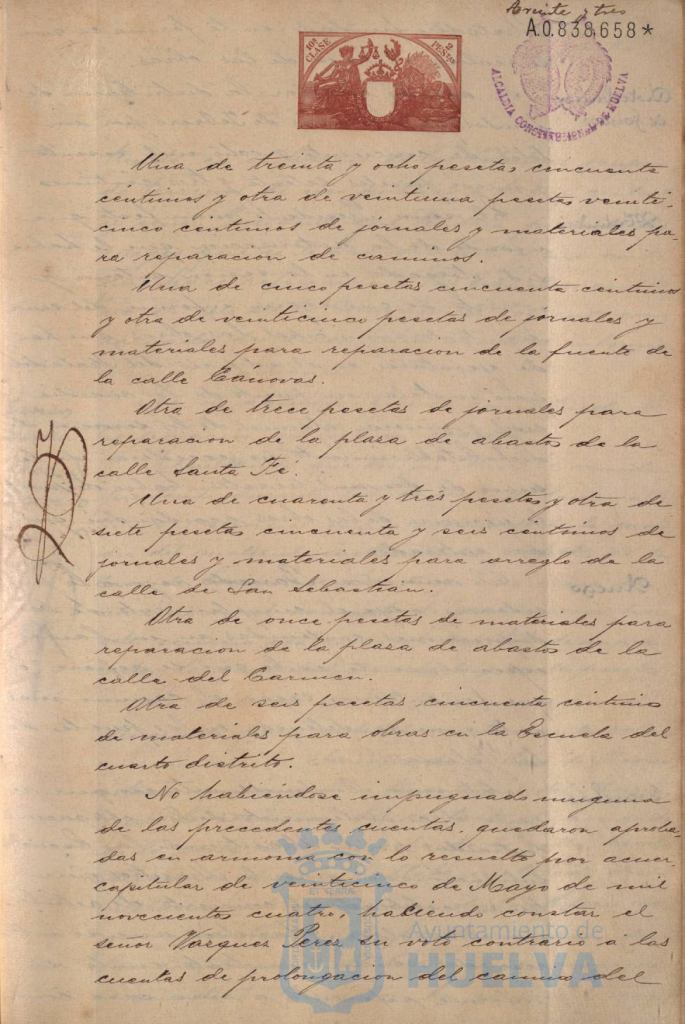 treinta y tres
A.0.838,658*
10ª CLASE
2 PESETAS
ALCALDIA CONSTITUCIONAL DE HUELVA
Una de treinta y ocho pesetas cincuenta
céntimos y otra de veintiuna pesetas veinti-
cinco céntimos de jornales y materiales pa-
ra reparacion de caminos.
Una de cinco pesetas cincuenta céntimos
y otra de veinticinco pesetas de jornales y
materiales para reparacion de la fuente de
la calle Cánovas.
Otra de trece pesetas de jornales para
reparacion de la plaza de abastos de la
calle Santa Fé.
Una de cuarenta y tres pesetas y otra de
siete pesetas cincuenta y seis céntimos de
jornales y materiales para arreglo de la
calle de San Sebastián.
Otra de once pesetas de materiales para
reparacion de la plaza de abastos de la
calle del Carmen.
Otra de seis pesetas cincuenta céntimos
de materiales para obras en la Escuela del
cuarto distrito.
No habiéndose impugnado ninguna
de las precedentes cuentas, quedaron aproba-
das en armonia con lo resuelto por acuer.
capitular de veinticinco de Mayo de mil
novecientos cuatro, haciendo constar el
señor Vazquez Perez su voto contrario á las
cuentas de prolongacion del camino del
Ayuntamiento de
HUELVA